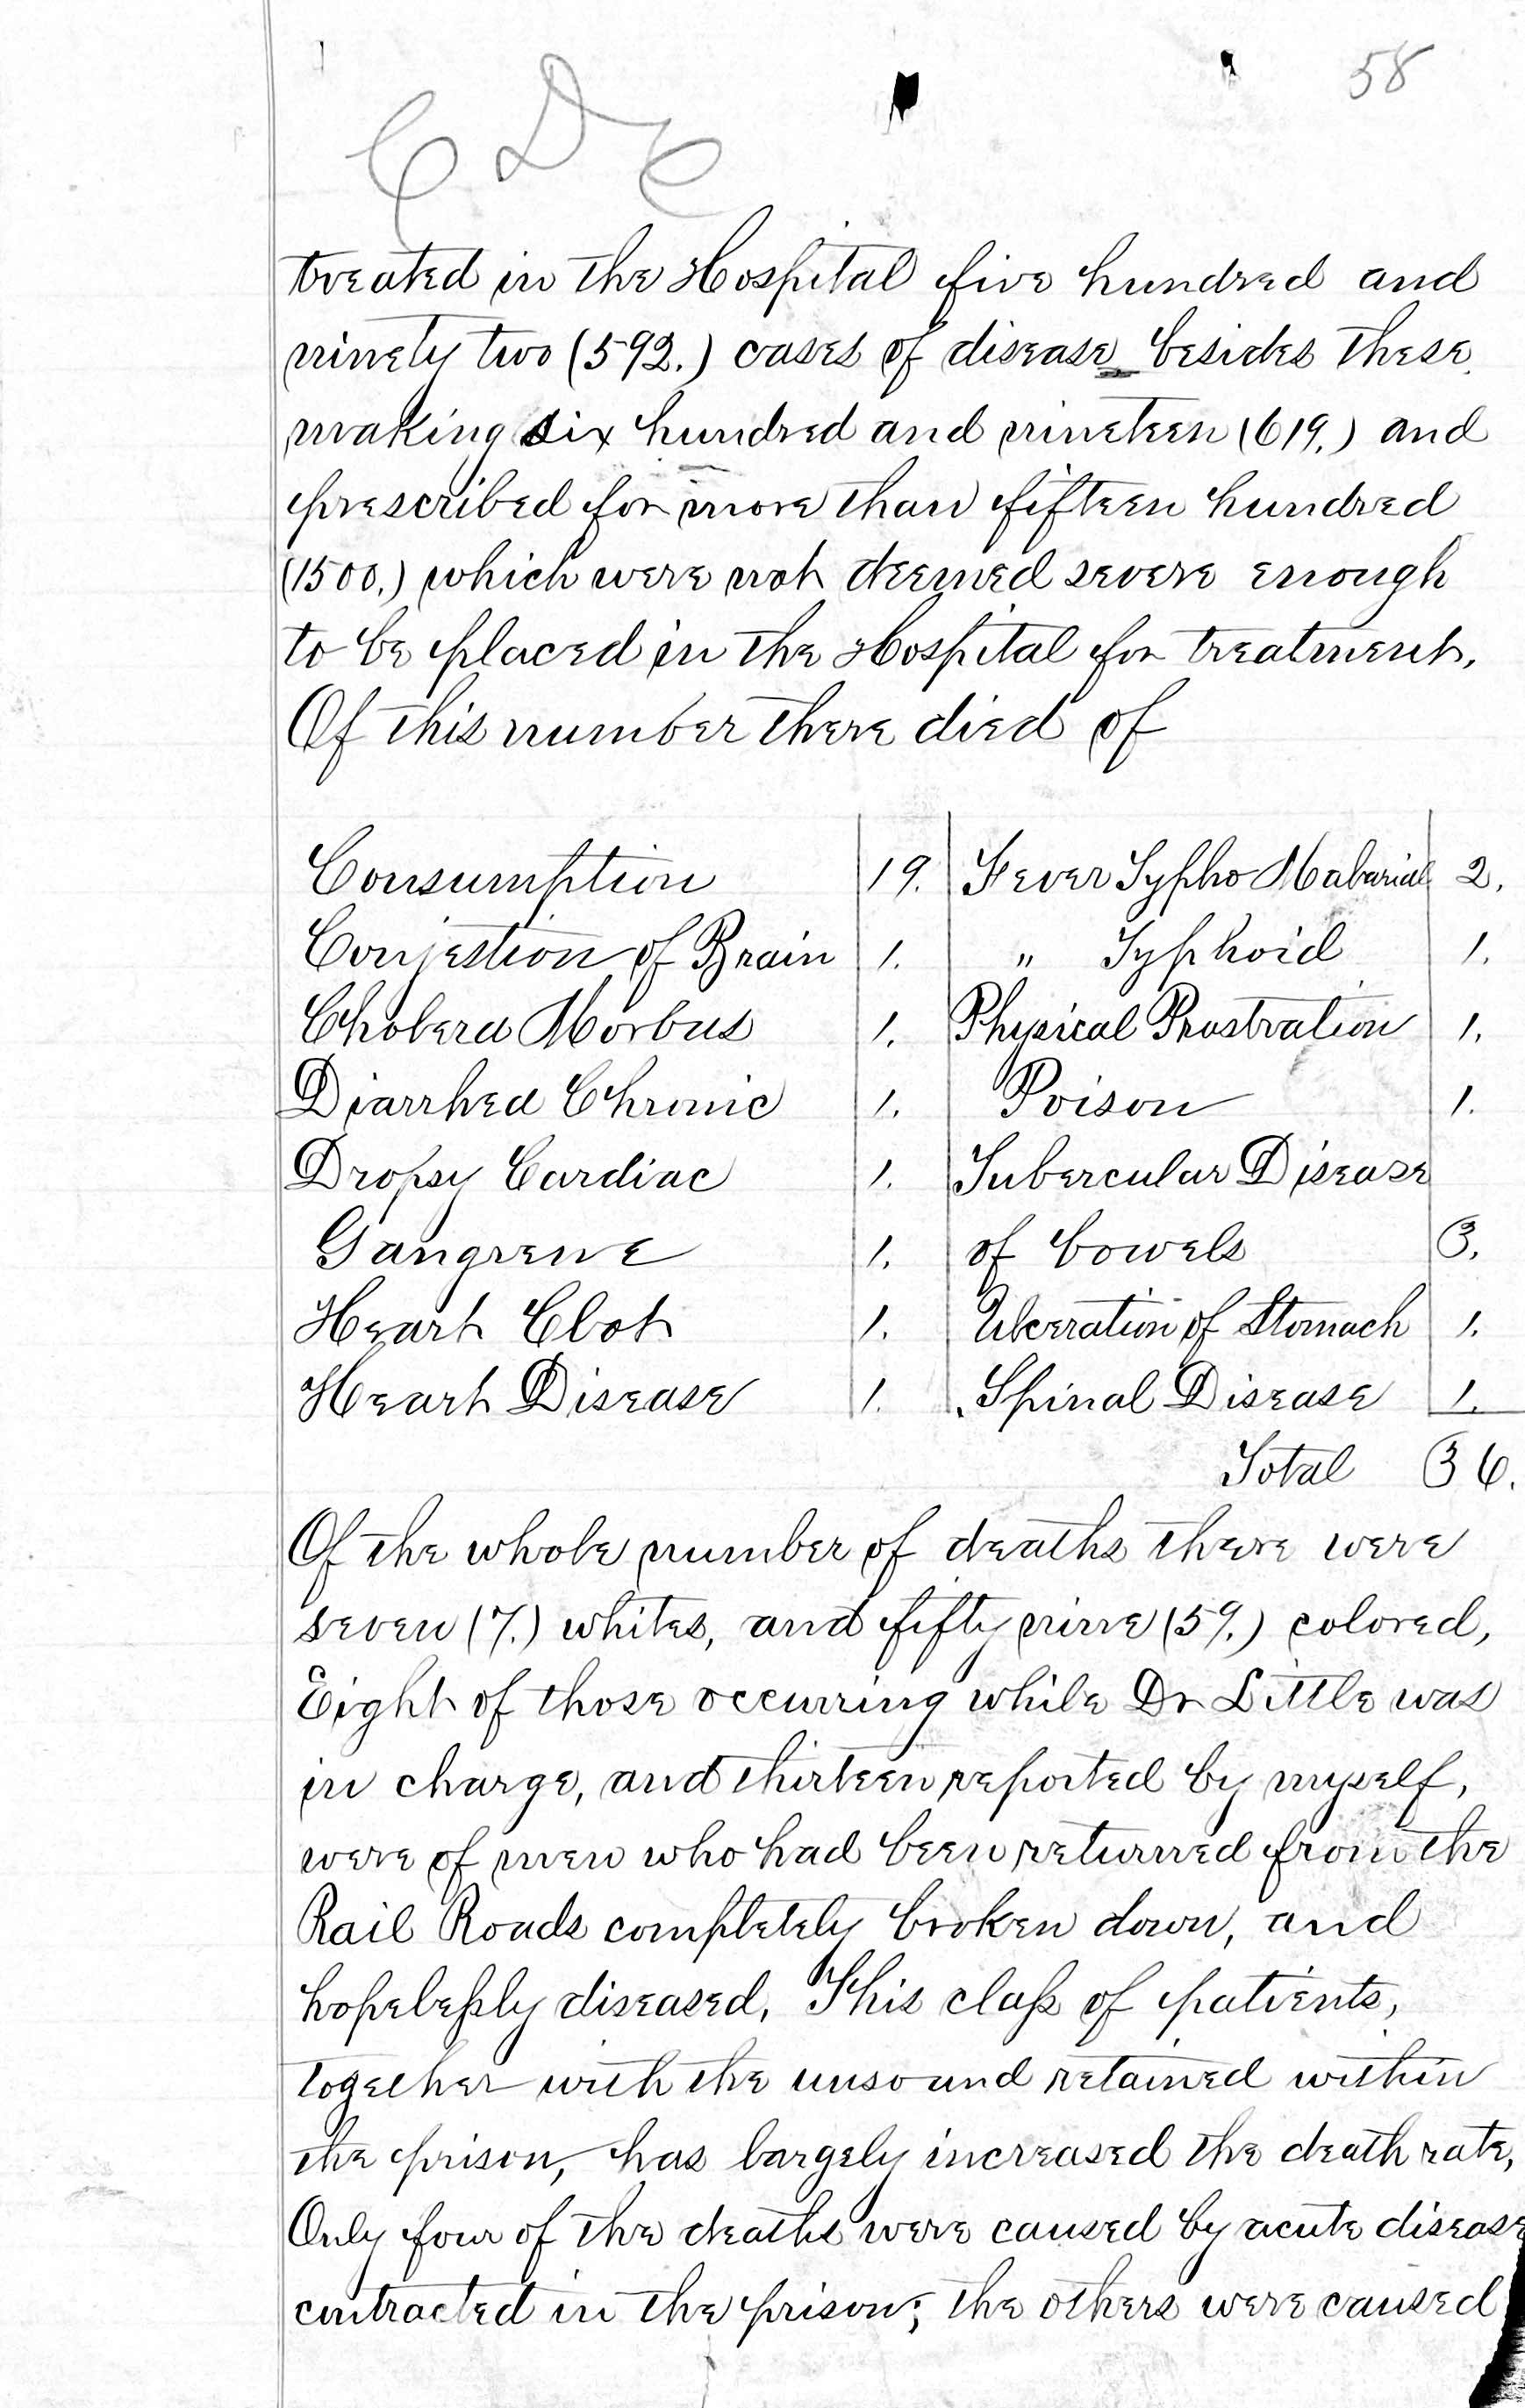 58
C D E
treated in the Hospital five hundred and
ninety two (592.) cases of disease besides these
making six hundred and nineteen (619.) and
prescribed for more than fifteen hundred
(1500.) which were not deemed severe enough
to be placed in the Hospital for treatment.
Of this number there died of
Consumption 19. Fever Typho Malarial 2.
Conjestion of Brain 1. " Typhoid 1.
Cholera Morbus 1. Physical Prostration 1.
Diarrhea Chronic 1. Poison 1.
Dropsy Cardiac 1. Tubercular Disease
Gangrene 1. of bowels 3.
Heart Clot 1. Ulceration of Stomach 1.
Heart Disease 1. Spinal Disease 1.
Total 36.
Of the whole number of deaths there were
seven (7.) whites, and fifty nine (59.) colored,
Eight of those occurring while Dr Little was
in charge, and thirteen reported by myself,
were of men who had been returned from the
Rail Roads completely broken down, and
hopelessly diseased. This class of patients,
together with the unsound retained within
the prison, has largely increased the death rate,
Only four of the deaths were caused by acute disease
contracted in the prison; the others were caused